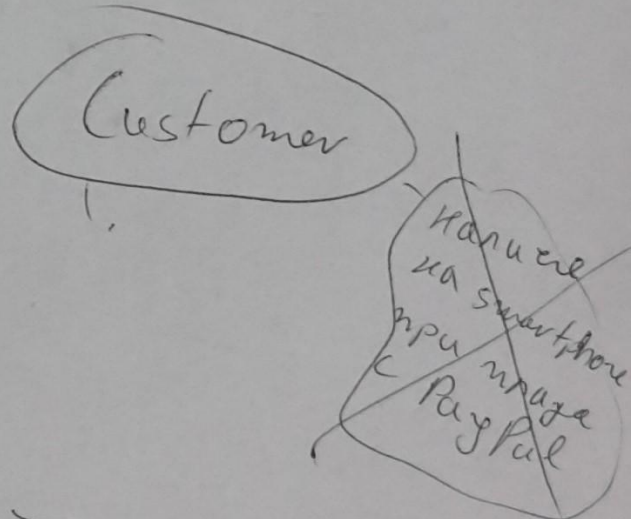 Customer
наличие
на smartphone
при
с PayPal